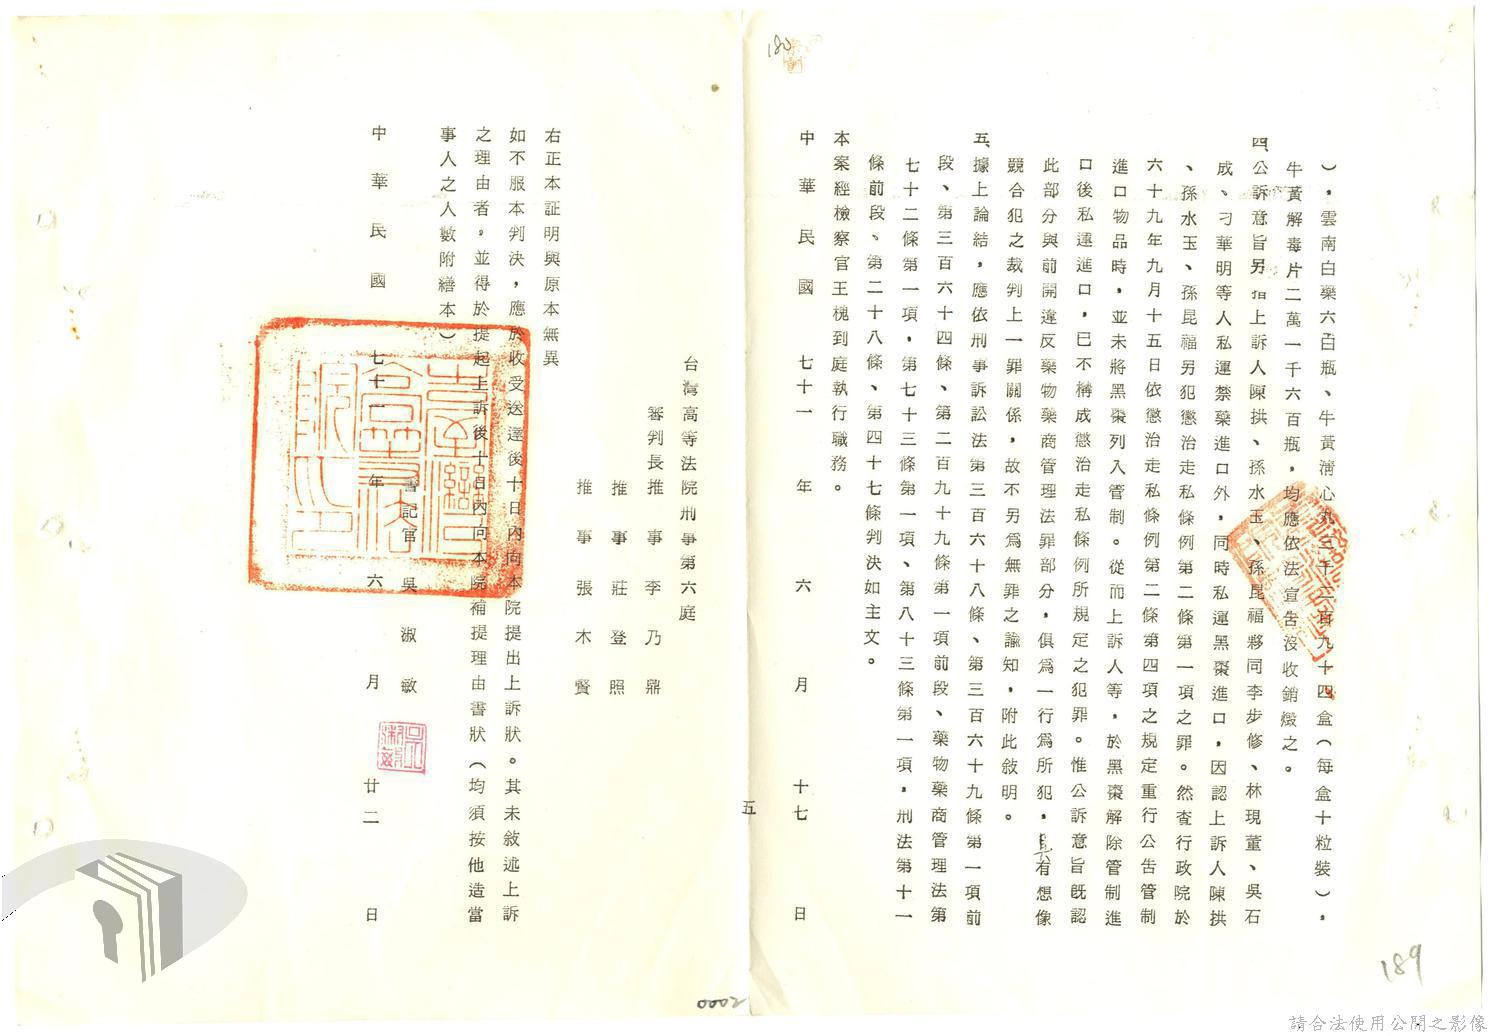 180
），雲南白藥六百瓶、牛黃清心丸三十三百九十四盒（每盒十粒裝），
牛黃解毒片二萬一千六百瓶，均應依法宣告沒收銷燬之。
四、公訴意旨另指上訴人陳拱、孫水玉、孫昆福夥同李步修、林現董、吳石
成、刁華明等人私運禁藥進口外，同時私運黑棗進口，因認上訴人陳拱
、孫水玉、孫昆福另犯懲治走私條例第二條第一項之罪。然查行政院於
六十九年九月十五日依懲治走私條例第二條第四項之規定重行公告管制
進口物品時，並未將黑棗列入管制。從而上訴人等，於黑棗解除管制進
口後私運進口，已不構成懲治走私條例所規定之犯罪。惟公訴意旨旣認
此部分與前開違反藥物藥商管理法罪部分，俱爲一行爲所犯，有想像
競合犯之裁判上一罪關係，故不另爲無罪之諭知，附此敘明。
五、據上論結，應依刑事訴訟法第三百六十八條、第三百六十九條第一項前
段、第三百六十四條、第二百九十九條第一項前段、藥物藥商管理法第
七十二條第一項，第七十三條第一項、第八十三條第一項，刑法第十一
條前段、第二十八條、第四十七條判決如主文。
本案經檢察官王槐到庭執行職務。
中華民國七十一年六月十七日
五
台灣高等法院刑事第六庭
審判長推事李乃鼎
推事莊登照
推事張木賢
右正本証明與原本無異
如不服本判決，應於收受送達後十日內向本院提出上訴狀。其未敘述上訴
之理由者，並得於提起上訴後十日內向本院補提理由書狀（均須按他造當
事人之人數附繕本）
書記官吳淑敏
中華民國七十一年六月廿二日
189
0002
請合法使用公開之影像